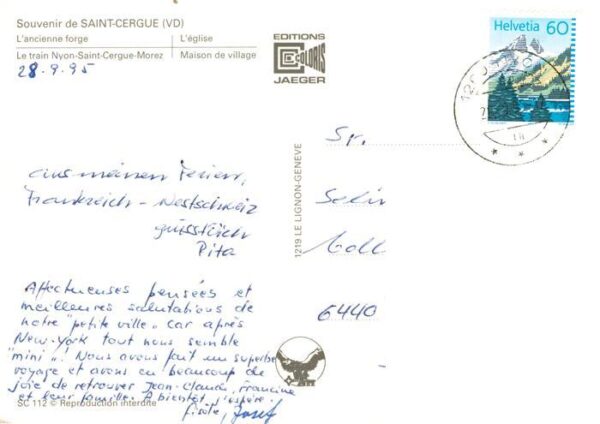 Souvenir de SAINT-CERGUE (VD)
L'ancienne forge
L'église
Le train Nyon-Saint-Cergue-Morez
Maison de village
28.9.95
EDITIONS
COLORIS
JAEGER
Helvetia 60
1219 LE LIGNON-GENEVE
aus meinen Ferien,
Frankreich - Westschweiz
grüsst dich
Pita
6440
Affectueuses pensées et
meilleures salutations de
notre "petite ville". Car après
New-York tout nous semble
"mini"! Nous avons fait un superbe
voyage et avons eu beaucoup de
joie de retrouver Jean-Claude, Francine
et leur famille. A bientôt j'espère.
Josef
SC 112 © Reproduction interdite